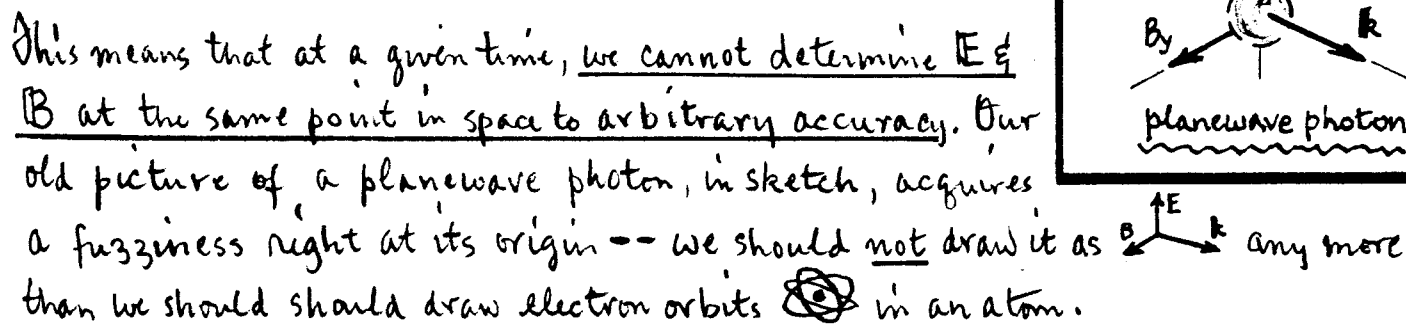 This means that at a given time, we cannot determine E &
B at the same point in space to arbitrary accuracy. Our
old picture of a planewave photon, in sketch, acquires
a fuzziness right at its origin -- we should not draw it as B E k any more
than we should should draw electron orbits in an atom.
By k
planewave photon